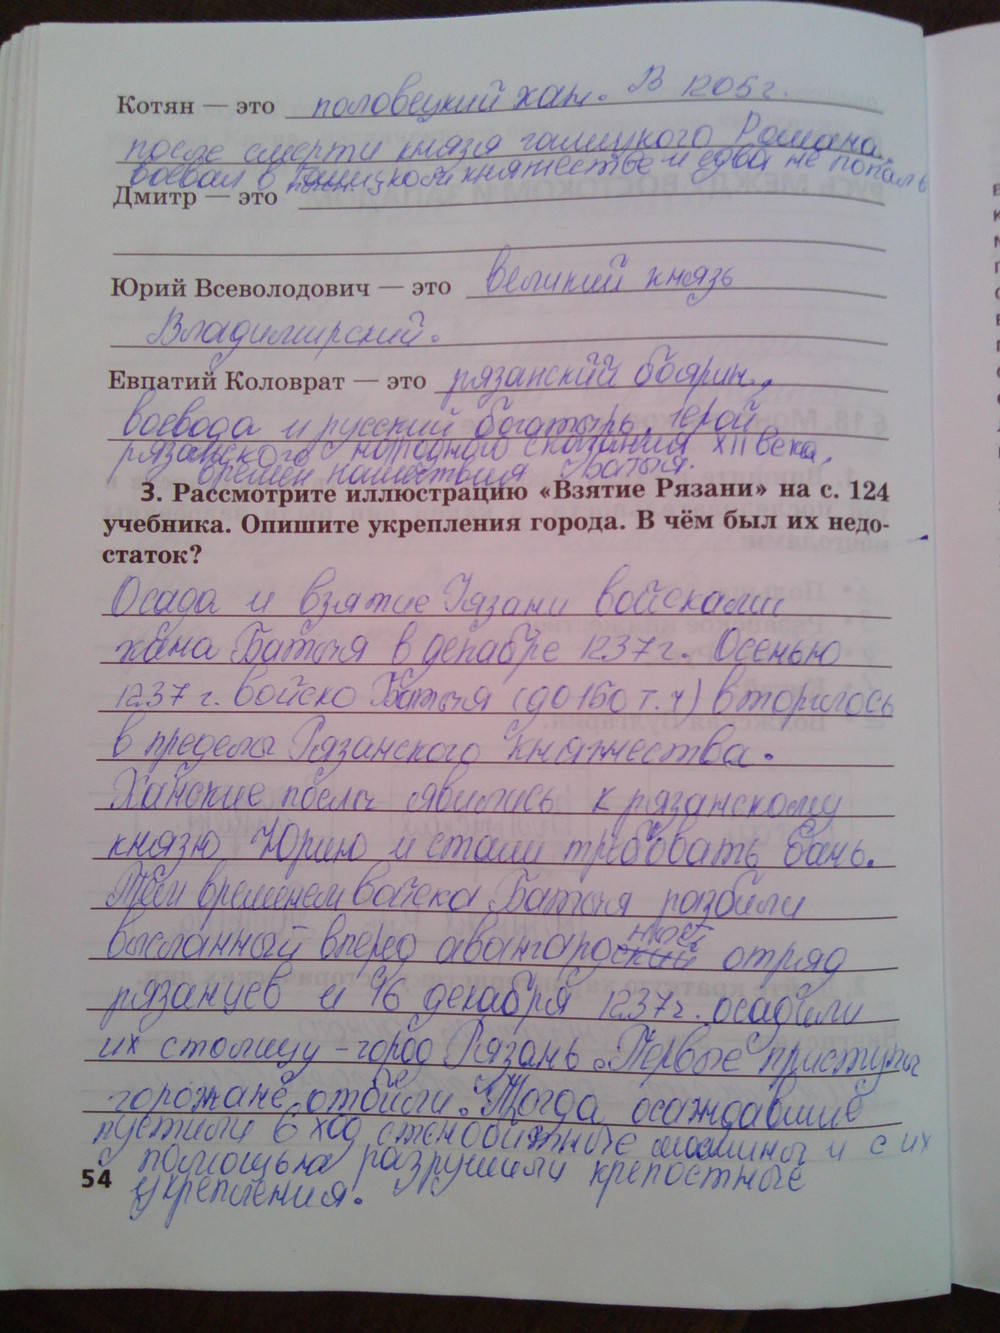 Котян — это половецкий хан. В 1205 г.
после смерти князя галицкого Романа
воевал в Галицком княжестве и едва не попалъ
Дмитр — это
Юрий Всеволодович — это великий князь
Владимирский.
Евпатий Коловрат — это рязанский боярин,
воевода и русский богатырь, герой
рязанского народного сказания XII века,
времен нашествия Батыя.
3. Рассмотрите иллюстрацию «Взятие Рязани» на с. 124
учебника. Опишите укрепления города. В чём был их недо-
статок?
Осада и взятие Рязани войсками
хана Батыя в декабре 1237 г. Осенью
1237 г. войско Батыя (до 150 т.ч) вторглось
в пределы Рязанского княжества.
Ханские послы явились к рязанскому
князю Юрию и стали требовать дань.
Тем временем войска Батыя разбили
высланный вперед авангардный отряд
рязанцев и 16 декабря 1237 г. осадили
их столицу - город Рязань. Первые приступы
горожане отбили. Тогда осаждавшие
пустили в ход стенобитные машины и с их
помощью разрушили крепостные
укрепления.
54